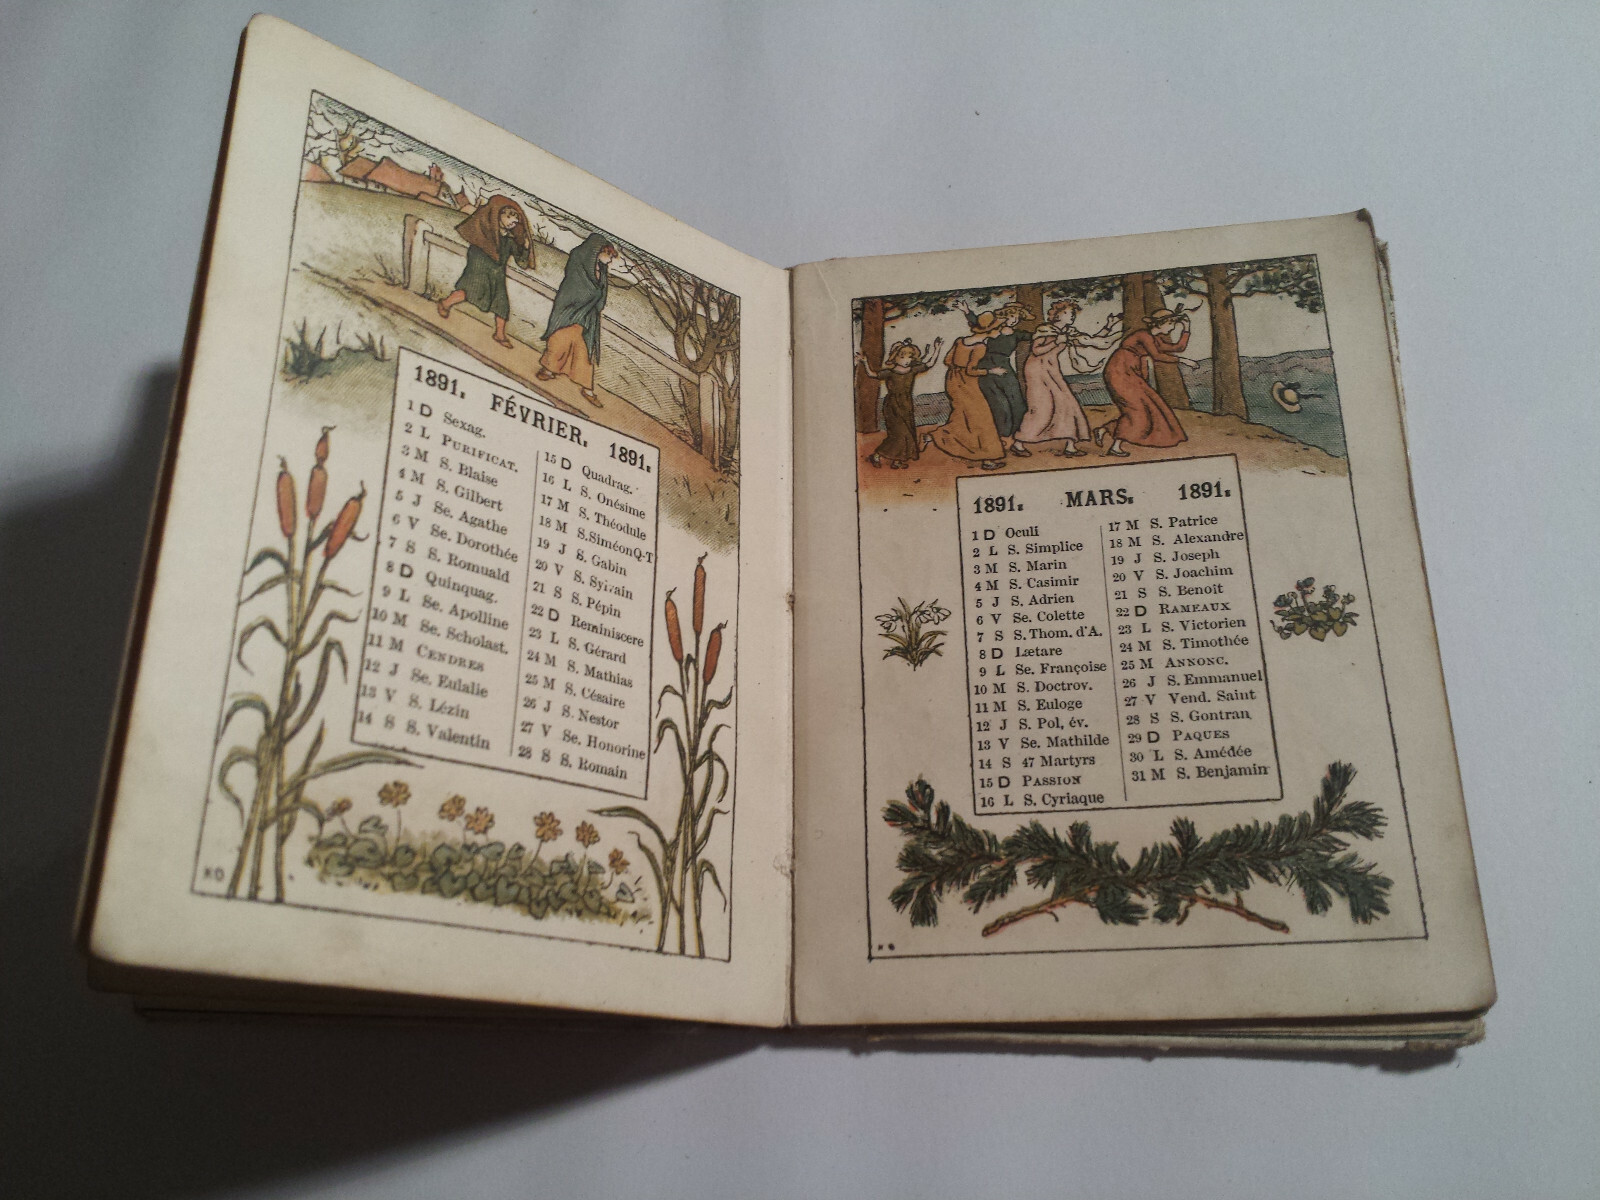 1891. FÉVRIER. 1891.
1 D Sexag.
2 L PURIFICAT.
3 M S. Blaise
4 M S. Gilbert
5 J Se. Agathe
6 V Se. Dorothée
7 S S. Romuald
8 D Quinquag.
9 L Se. Apolline
10 M Se. Scholast.
11 M CENDRES
12 J Se. Eulalie
13 V S. Lézin
14 S S. Valentin
15 D Quadrag.
16 L S. Onésime
17 M S. Théodule
18 M S. Siméon Q-T
19 J S. Gabin
20 V S. Sylvain
21 S S. Pépin
22 D Reminiscere
23 L S. Gérard
24 M S. Mathias
25 M S. Césaire
26 J S. Nestor
27 V Se. Honorine
28 S S. Romain
1891. MARS. 1891.
1 D Oculi
2 L S. Simplice
3 M S. Marin
4 M S. Casimir
5 J S. Adrien
6 V Se. Colette
7 S S. Thom. d'A.
8 D Lætare
9 L Se. Françoise
10 M S. Doctrov.
11 M S. Euloge
12 J S. Pol, év.
13 V Se. Mathilde
14 S 47 Martyrs
15 D PASSION
16 L S. Cyriaque
17 M S. Patrice
18 M S. Alexandre
19 J S. Joseph
20 V S. Joachim
21 S S. Benoit
22 D RAMEAUX
23 L S. Victorien
24 M S. Timothée
25 M ANNONC.
26 J S. Emmanuel
27 V Vend. Saint
28 S S. Gontran
29 D PAQUES
30 L S. Amédée
31 M S. Benjamin